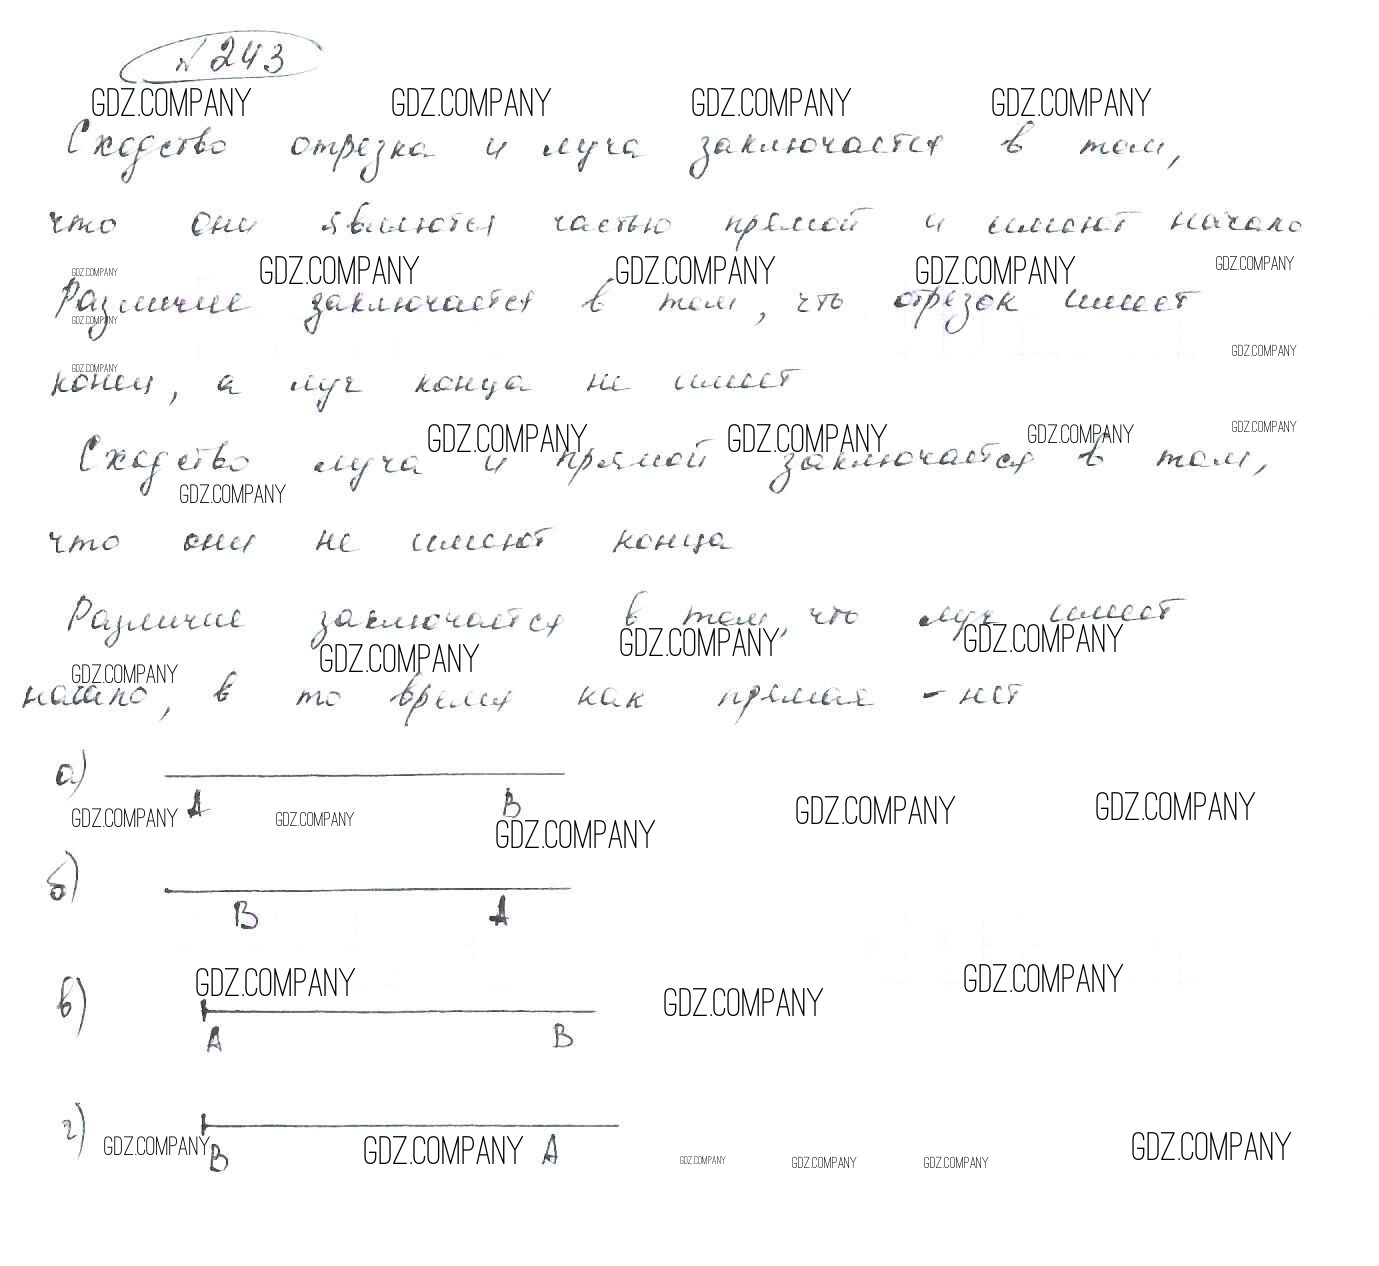 № 243
GDZ.COMPANY GDZ.COMPANY GDZ.COMPANY GDZ.COMPANY
Сходство отрезка и луча заключается в том,
что они являются частью прямой и имеют начало
GDZ.COMPANY GDZ.COMPANY GDZ.COMPANY GDZ.COMPANY GDZ.COMPANY
Различие заключается в том, что отрезок имеет
GDZ.COMPANY
GDZ.COMPANY
GDZ.COMPANY
конец, а луч конца не имеет
GDZ.COMPANY GDZ.COMPANY GDZ.COMPANY GDZ.COMPANY
Сходство луча и прямой заключается в том,
GDZ.COMPANY
что они не имеют конца
Различие заключается в том, что луч имеет
GDZ.COMPANY GDZ.COMPANY GDZ.COMPANY GDZ.COMPANY
начало, в то время как прямая - нет
а)
A B
GDZ.COMPANY GDZ.COMPANY GDZ.COMPANY GDZ.COMPANY GDZ.COMPANY
б)
B A
GDZ.COMPANY GDZ.COMPANY GDZ.COMPANY
в)
A B
г)
GDZ.COMPANY B GDZ.COMPANY A GDZ.COMPANY GDZ.COMPANY GDZ.COMPANY GDZ.COMPANY